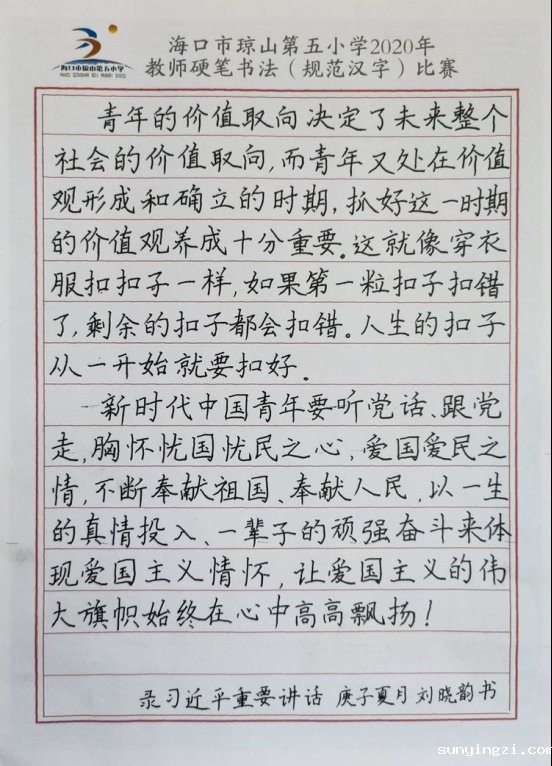 海口市琼山第五小学2020年
教师硬笔书法（规范汉字）比赛
海口市琼山第五小学
青年的价值取向决定了未来整个
社会的价值取向,而青年又处在价值
观形成和确立的时期,抓好这一时期
的价值观养成十分重要。这就像穿衣
服扣扣子一样,如果第一粒扣子扣错
了,剩余的扣子都会扣错。人生的扣子
从一开始就要扣好。
新时代中国青年要听党话、跟党
走,胸怀忧国忧民之心,爱国爱民之
情,不断奉献祖国、奉献人民,以一生
的真情投入、一辈子的顽强奋斗来体
现爱国主义情怀,让爱国主义的伟
大旗帜始终在心中高高飘扬!
录习近平重要讲话 庚子夏月 刘晓韵书
sunyingzi.com